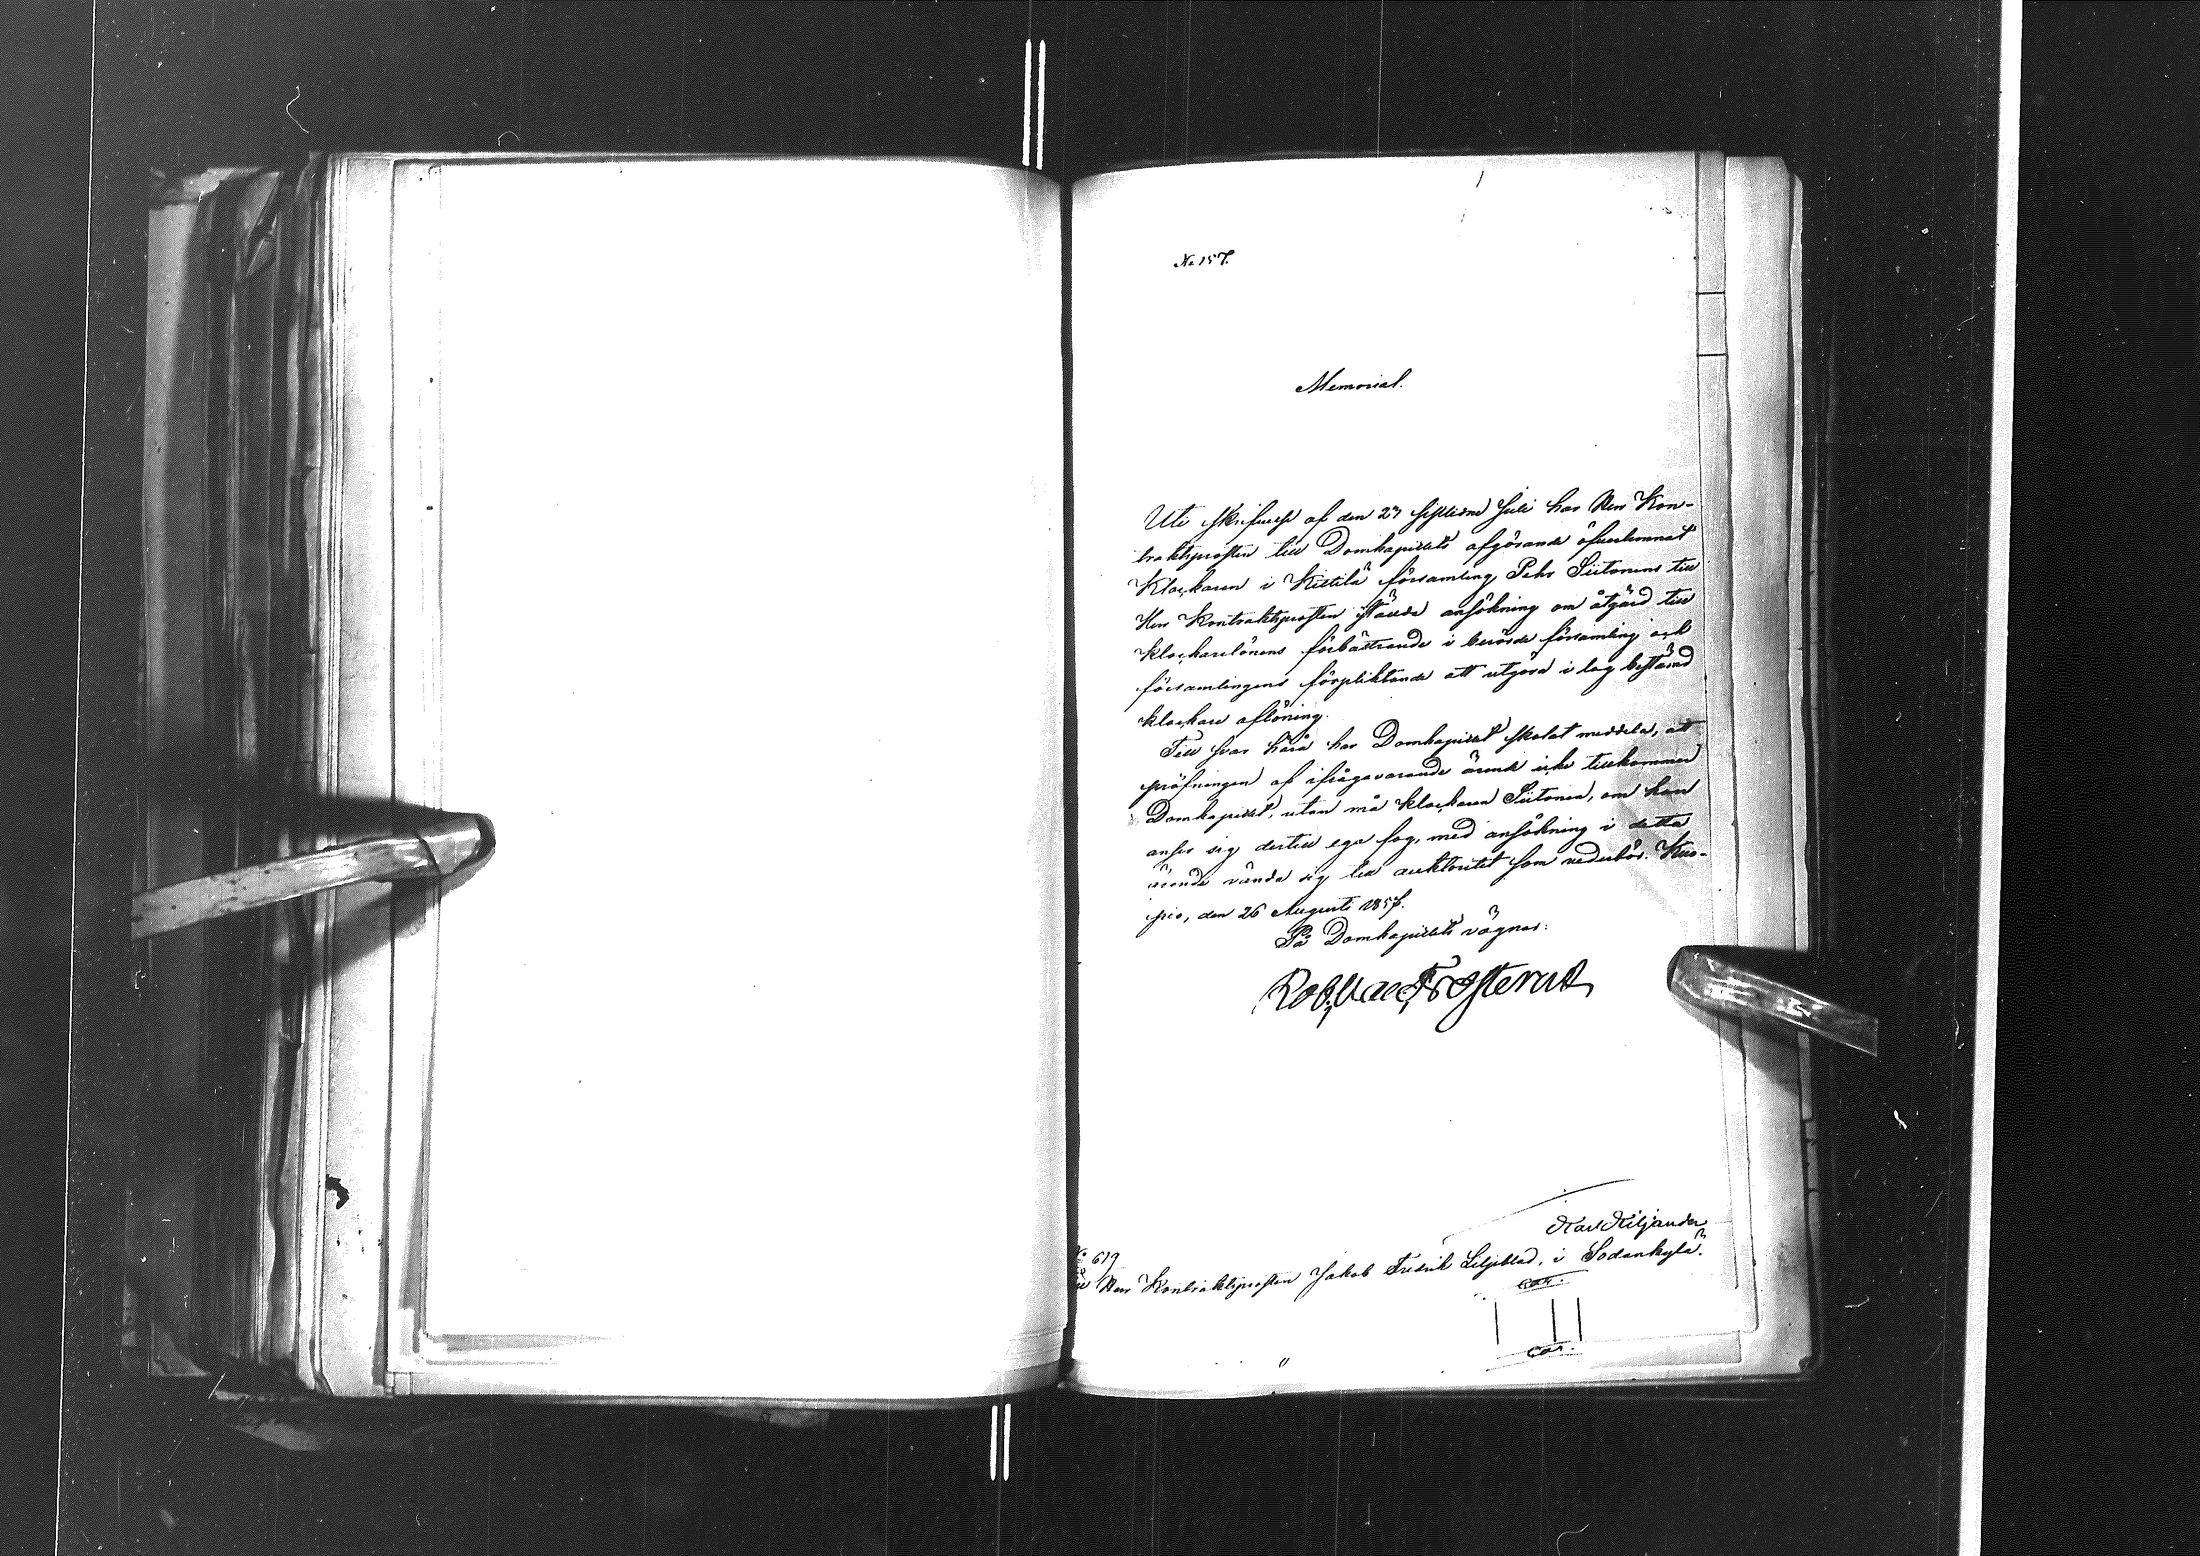 No 157.
Memorial.
Uti skrifvelse af den 27 sistledne Juli har Herr Kon-
traktsprosten till Domkapitlets afgörande öfverlemnat
Klockaren i Kittilä församling Pehr Siitonens till
Herr Kontraktsprosten ställda ansökning om åtgärd till
klockarelönens förbättrande i berörde församling och
församlingens förpliktande att utgöra i lag bestämd
klockare aflöning.
Till svar härå har Domkapitlet skolat meddela, att
pröfningen af ifrågavarande ärende icke tillkommer
Domkapitlet, utan må klockaren Siitonen, om han
anser sig dertill ega fog, med ansökning i detta
ärende vända sig till auktoritet som vederbör. Kuo-
pio, den 26 Augusti 1857.
På Domkapitlets vägnar:
Rob. Vald. Frosterus
Karl Kiljander
No 619
Till Herr Kontraktsprosten Jakob Fredrik Liljeblad, i Sodankylä.